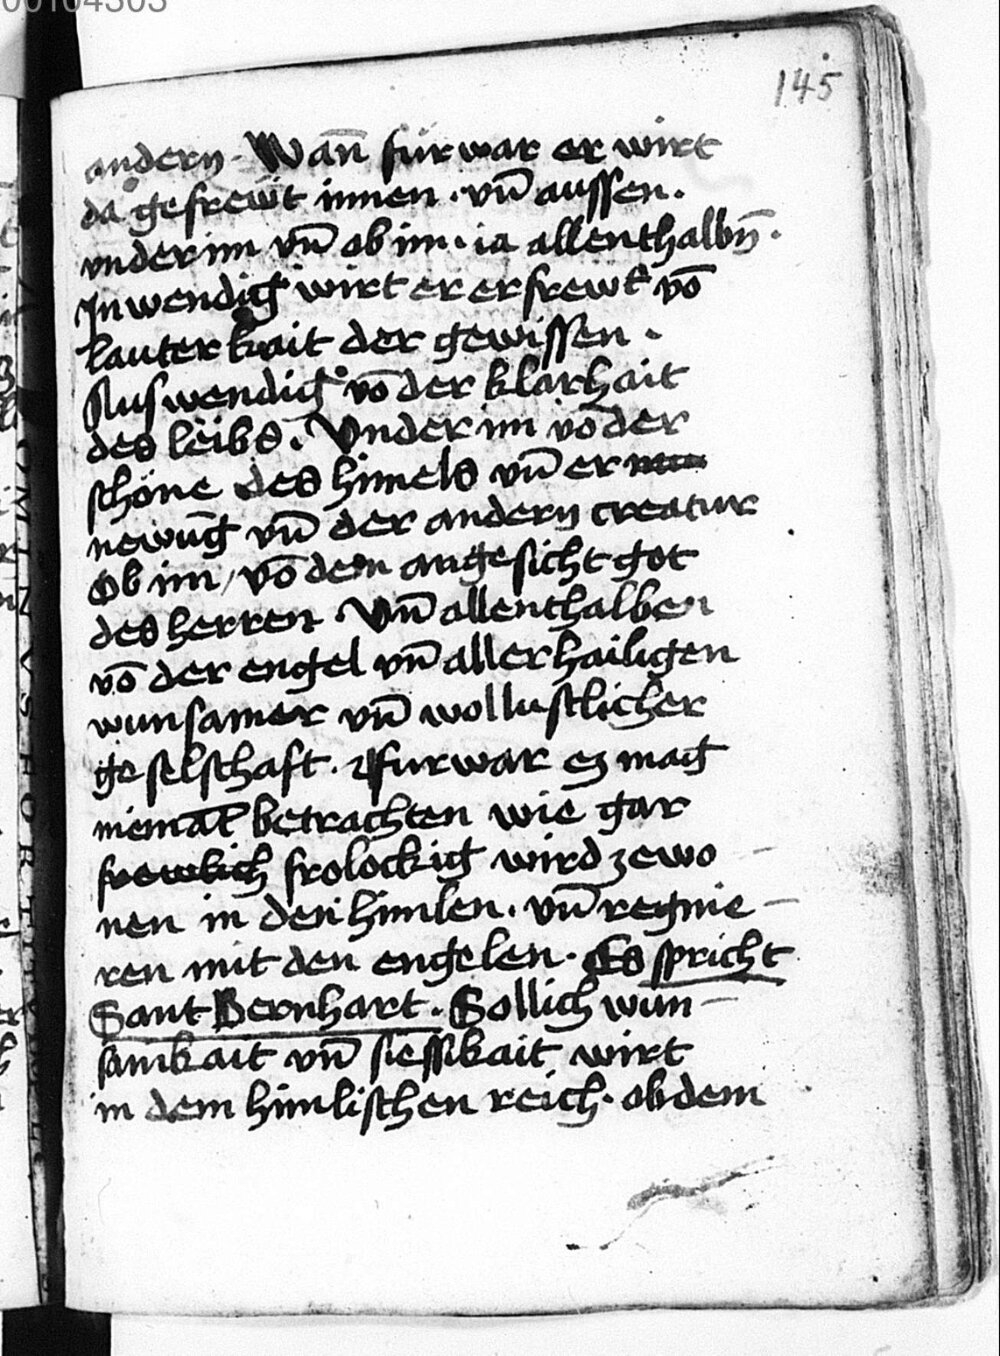 145
andern. Wañ fúrwar er wirt
da gefrewt innen. vñ aussen.
vnder im vñ ob im. ia allenthalbñ.
Inwendig wirt er erfrewt vō
lauterkait der gewissen.
Auswendig vō der klarhait
des leibs. Vnder im vō der
schöne des himels vñ er
newūg vñ der andern creatur
Ob im / vō dem angesicht got
des herren. Vñ allenthalben
vō der engel vñ aller hailigen
wunsamer vñ wollustlicher
geselschaft. furwar eʒ mag
niemāt betrachten wie gar
frolockig wird ʒewo
nen in den himlen. vñ regnie
ren mit den engelen. Es spricht
Sant Bernhart. Sollich wun
samkait vñ siessikait wirt
in dem himlischen reich. ob dem